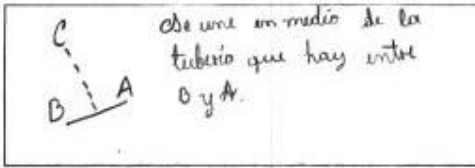 C
Se une en medio de la
tuberio que hay entre
B y A.
B A